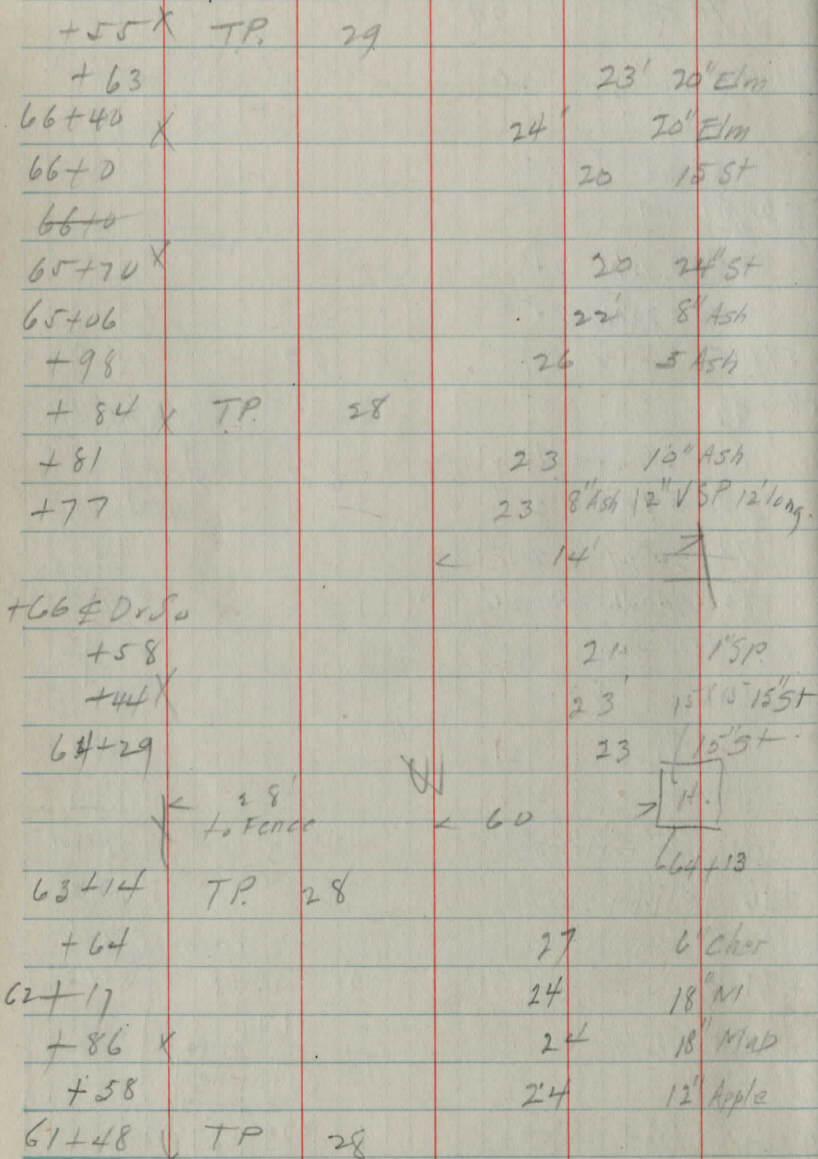 +55 X T.P. 29
+63 23' 20" Elm
66+40 X 24' 20" Elm
66+0 20 15 St
66+0
65+70 X 20 24" St
65+06 22' 8" Ash
+98 26 5 Ash
+84 X T.P. 28
+81 23 10" Ash
+77 23 8" Ash 12" VSP 12' long.
< 14'
+66 ₵ Dr So
+58 21 1" SP.
+44 X 23' 15" 15" 15" St
64+29 23 15" St.
< 28' < 60 > H.
to Fence
64+13
63+14 T.P. 28
+64 27 6" Cher
62+17 24 18" M
+86 X 24 18" Map
+58 24 12" Apple
61+48 TP 28